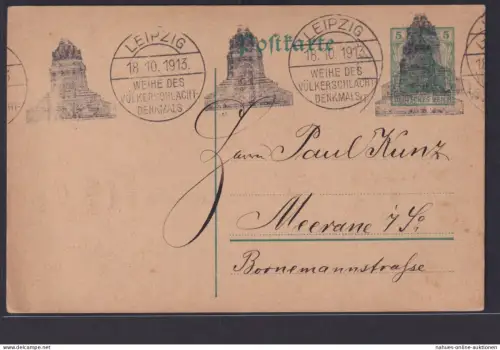 LEIPZIG
18.10.1913.
WEIHE DES
VÖLKERSCHLACHT-
DENKMALS
LEIPZIG
18.10.1913.
WEIHE DES
VÖLKERSCHLACHT-
DENKMALS
Postkarte
5 5
DEUTSCHES REICH
Herrn Paul Kunz
Meerane i/Sa
Bornemannstrasse